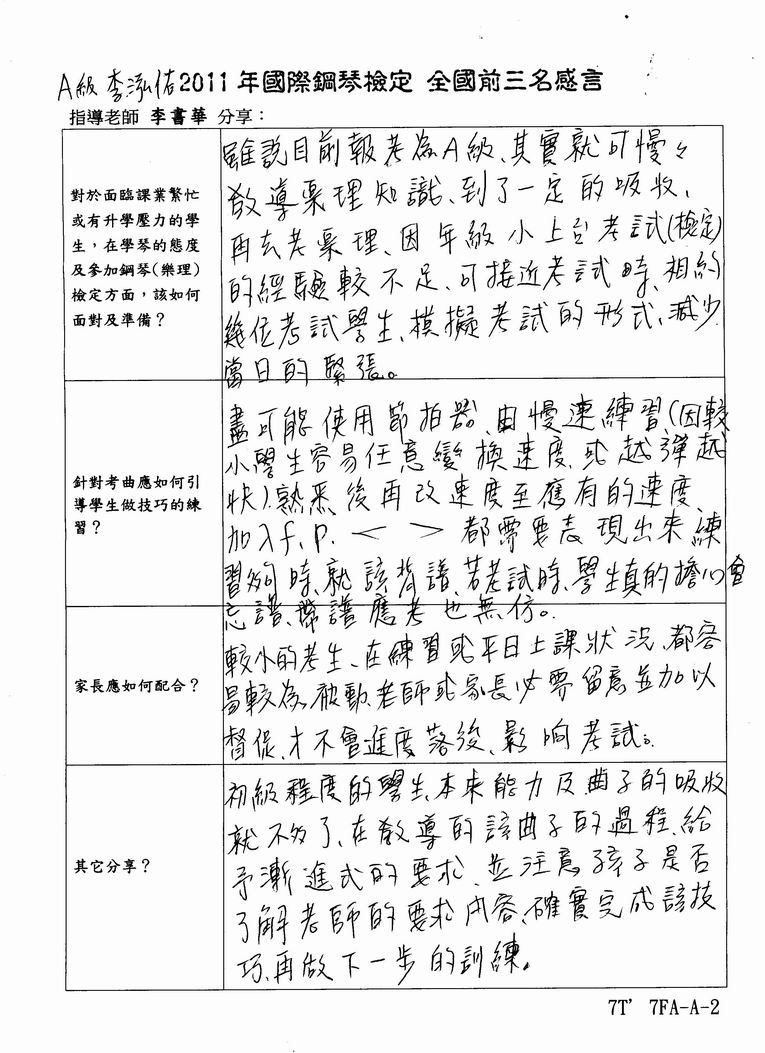 A級 李泓佑 2011 年國際鋼琴檢定 全國前三名感言
指導老師 李書華 分享：
對於面臨課業繁忙
或有升學壓力的學
生，在學琴的態度
及參加鋼琴(樂理)
檢定方面，該如何
面對及準備？
雖說目前報考為A級、其實就可慢々
教導樂理知識、到了一定的吸收、
再去考樂理、因年級小上台考試(檢定)
的經驗較不足、可接近考試時、相約
幾位考試學生、模擬考試的形式、減少
當日的緊張。
針對考曲應如何引
導學生做技巧的練
習？
盡可能使用節拍器、由慢速練習、(因較
小學生容易任意變換速度、或越彈越
快)、熟悉後再改速度至應有的速度、
加入f、p. < > 都需要表現出來練
習夠時、就該背譜、若考試時、學生真的擔心會
忘譜、帶譜應考也無妨。
家長應如何配合？
較小的考生、在練習或平日上課狀況、都容
易較為被動、老師或家長必要留意並加以
督促、才不會進度落後、影响考試。
其它分享？
初級程度的學生、本來能力及曲子的吸收
就不多了、在教導的該曲子的過程、給
予漸進式的要求、並注意孩子是否
了解老師的要求內容、確實完成該技
巧、再做下一步的訓練。
7T' 7FA-A-2